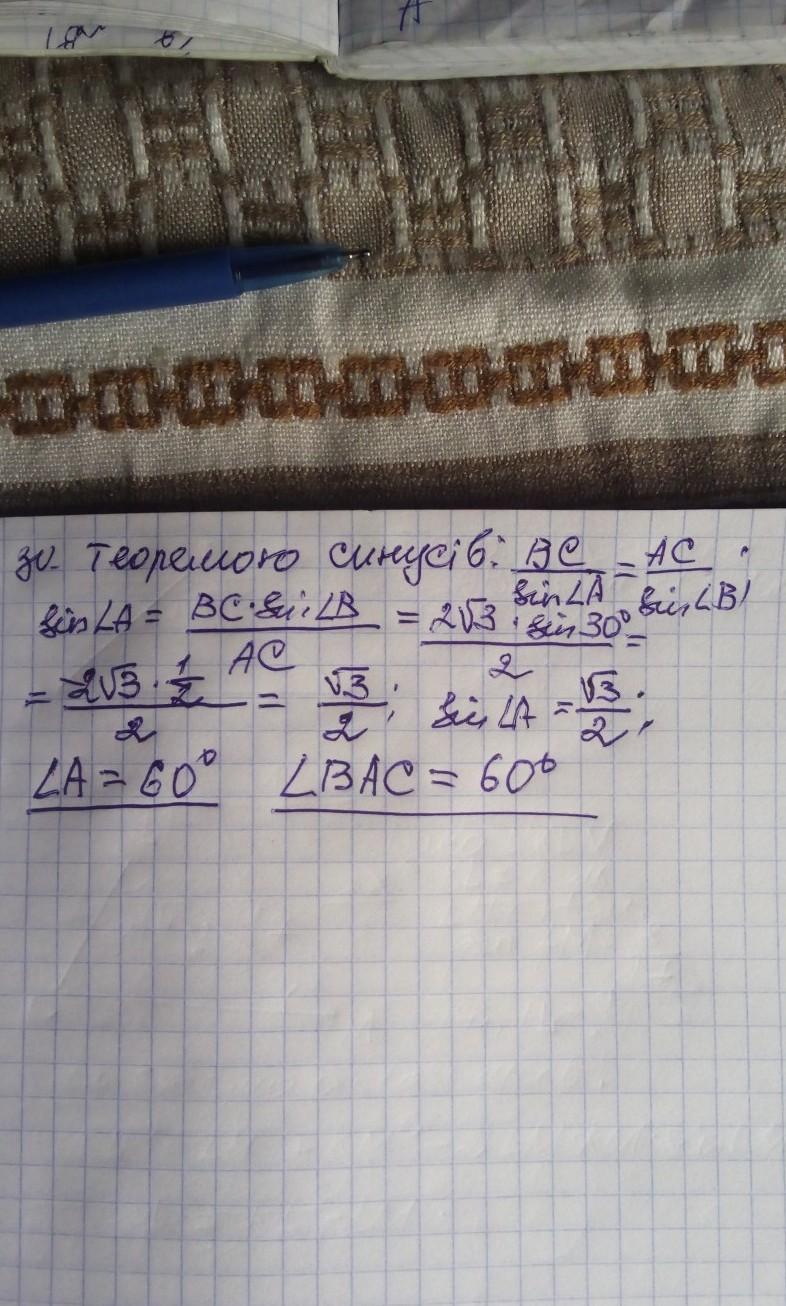 A
за теоремою синусів: BC/sin∠A = AC/sin∠B;
sin∠A = BC·sin∠B/AC = 2√3·sin30°/2 =
= 2√3·1/2/2 = √3/2; sin∠A = √3/2;
∠A = 60° ∠BAC = 60°